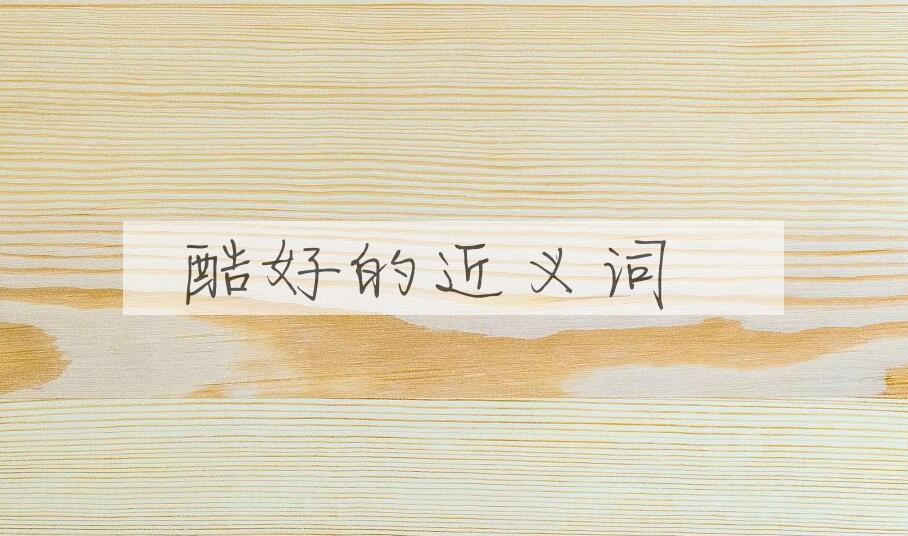 酷好的近义词